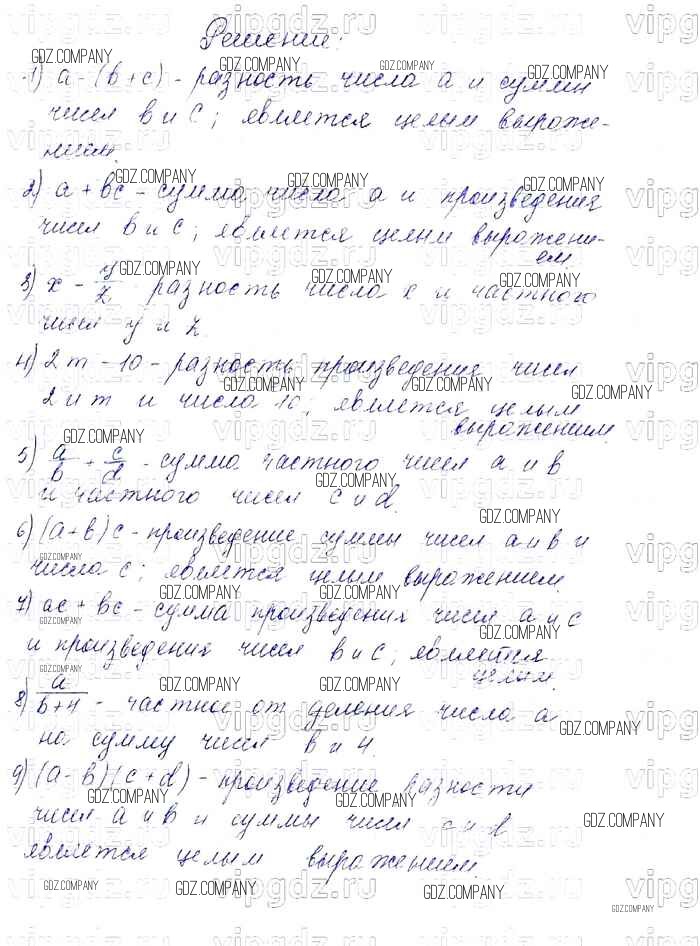 Решение:
1) a - (b + c) - разность числа a и суммы
чисел b и c; является целым выраже-
нием.
2) a + bc - сумма числа a и произведения
чисел b и c; является целым выражени-
ем.
3) x - y/z разность числа x и частного
чисел y и z.
4) 2m - 10 - разность произведения чисел
2 и m и числа 10; является целым
выражением.
5) a/b + c/d - сумма частного чисел a и b
и частного чисел c и d.
6) (a + b)c - произведение суммы чисел a и b и
числа c; является целым выражением.
7) ac + bc - сумма произведения чисел a и c
и произведения чисел b и c; является
целым.
8) a/b+4 - частное от деления числа a
на сумму чисел b и 4.
9) (a - b)(c + d) - произведение разности
чисел a и b и суммы чисел c и d
является целым выражением.